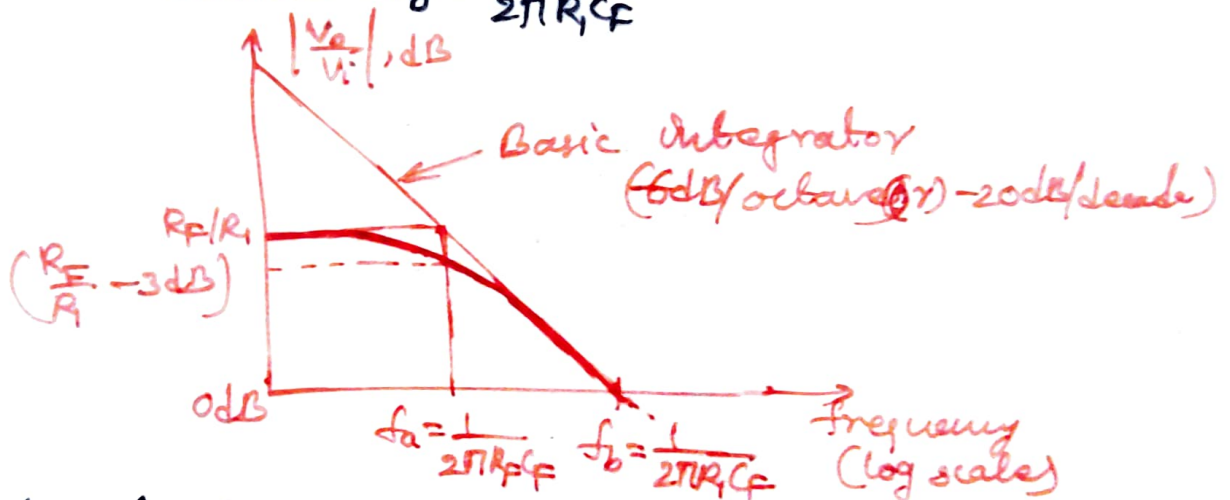 2πR₁CF
|Vo/Vi|, dB
Basic Integrator
(-6dB/octave (or) -20dB/decade)
RF/R₁
(RF/R₁ -3dB)
0dB
fa = 1/2πRFCF
fb = 1/2πR₁CF
frequency
(log scale)